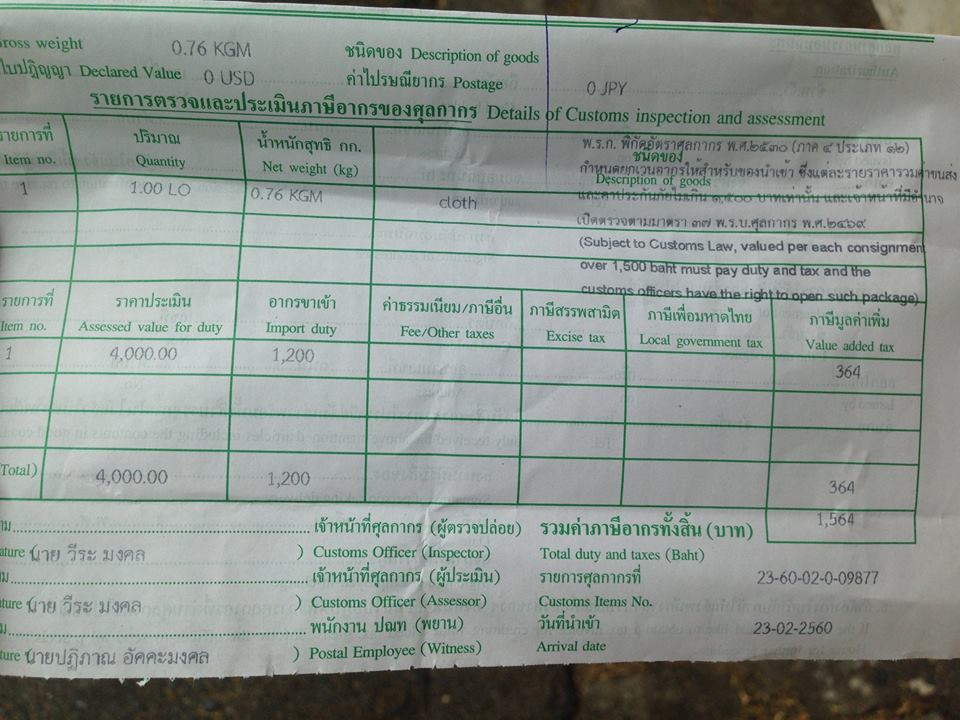 Gross weight 0.76 KGM ชนิดของ Description of goods
ใบปฏิญญา Declared Value 0 USD ค่าไปรษณียากร Postage 0 JPY
รายการตรวจและประเมินภาษีอากรของศุลกากร Details of Customs inspection and assessment
รายการที่ ปริมาณ น้ำหนักสุทธิ กก. ชนิดของ
Item no. Quantity Net weight (kg) Description of goods
1 1.00 LO 0.76 KGM cloth
พ.ร.ก. พิกัดอัตราศุลกากร พ.ศ.๒๕๓๐ (ภาค ๔ ประเภท ๑๒)
กำหนดยกเวนอากรให้สำหรับของนำเข้า ซึ่งแต่ละรายราคารวมค่าขนส่ง
และค่าประกันภัยไม่เกิน ๑,๕๐๐ บาทเท่านั้น และเจ้าหน้าที่มีอำนาจ
เปิดตรวจตามมาตรา ๓๗ พ.ร.บ.ศุลกากร พ.ศ.๒๔๖๙
(Subject to Customs Law, valued per each consignment
over 1,500 baht must pay duty and tax and the
customs officers have the right to open such package)
รายการที่ ราคาประเมิน อากรขาเข้า ค่าธรรมเนียม/ภาษีอื่น ภาษีสรรพสามิต ภาษีเพื่อมหาดไทย ภาษีมูลค่าเพิ่ม
Item no. Assessed value for duty Import duty Fee/Other taxes Excise tax Local government tax Value added tax
1 4,000.00 1,200 364
Total) 4,000.00 1,200 364
1,564
เจ้าหน้าที่ศุลกากร (ผู้ตรวจปล่อย) รวมค่าภาษีอากรทั้งสิ้น (บาท)
ature นาย วีระ มงคล ) Customs Officer (Inspector) Total duty and taxes (Baht)
เจ้าหน้าที่ศุลกากร (ผู้ประเมิน) รายการศุลกากรที่ 23-60-02-0-09877
ature นาย วีระ มงคล ) Customs Officer (Assessor) Customs Items No.
พนักงาน ปณท (พยาน) วันที่นำเข้า 23-02-2560
ature นายปฏิภาณ อัคคะมงคล ) Postal Employee (Witness) Arrival date